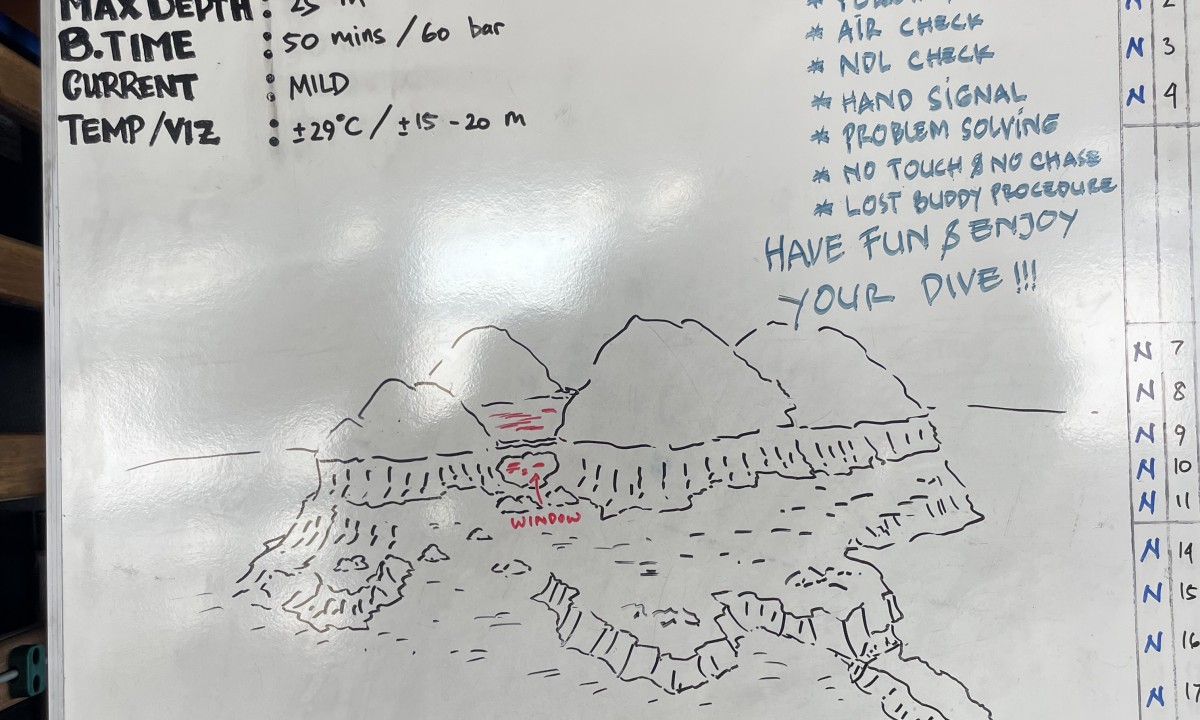 MAX DEPTH : 25 m
B.TIME : 50 mins / 60 bar
CURRENT : MILD
TEMP/VIZ : ±29°C / ±15-20 m
* AIR CHECK
* NDL CHECK
* HAND SIGNAL
* PROBLEM SOLVING
* NO TOUCH & NO CHASE
* LOST BUDDY PROCEDURE
HAVE FUN & ENJOY
YOUR DIVE !!!
WINDOW
N 2
N 3
N 4
N 7
N 8
N 9
N 10
N 11
N 14
N 15
N 16
N 17